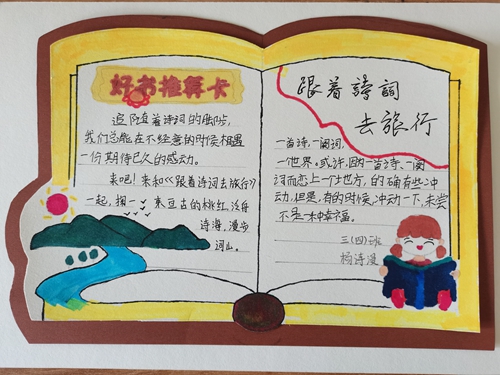 好书推荐卡
追随着诗词的脚步,
我们总能在不经意的时候相遇
一份期待已久的感动。
来吧!来和《跟着诗词去旅行》
一起,掬一
来亘古的桃红,泛舟
诗海,漫步
词山。
跟着詩詞
去旅行
一首诗,一阕词,
一世界。或许,因为一首诗、一阕
词而恋上一个地方,的确有些冲
动,但是,有的时候,冲动一下,未尝
不是一种幸福。
三(四)班
杨诗漫